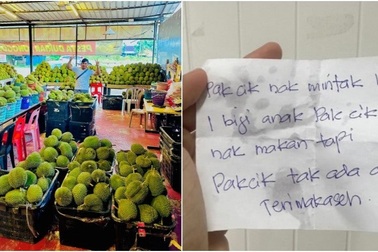 Pakcik nak mintak
1 bigi anak Pakcik
nak makan tapi
Pakcik tak ada
Terimakaseh.